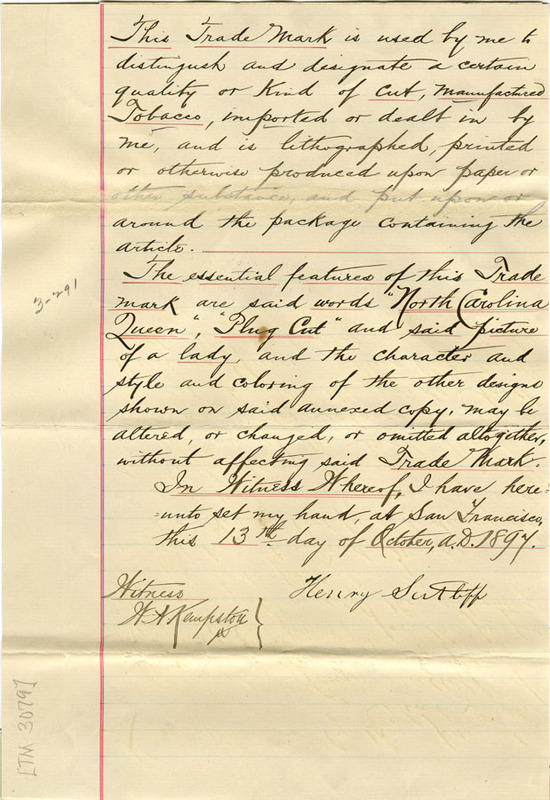 This Trade Mark is used by me to
distinguish and designate a certain
quality or kind of cut, manufactured
Tobacco, imported or dealt in by
me, and is lithographed, printed
or otherwise produced upon paper or
other substance, and put upon or
around the package containing the
article.
The essential features of this Trade
mark are said words "North Carolina
Queen", "Plug Cut" and said picture
of a lady, and the character and
style and coloring of the other designs
shown on said annexed copy, may be
altered, or changed, or omitted altogether,
without affecting said Trade Mark.
In Witness Whereof, I have here=
=unto set my hand, at San Francisco,
this 13th day of October, A.D. 1897.
Henry Sutliff
Witness
W A Kempston
3-291
[TM 3079]